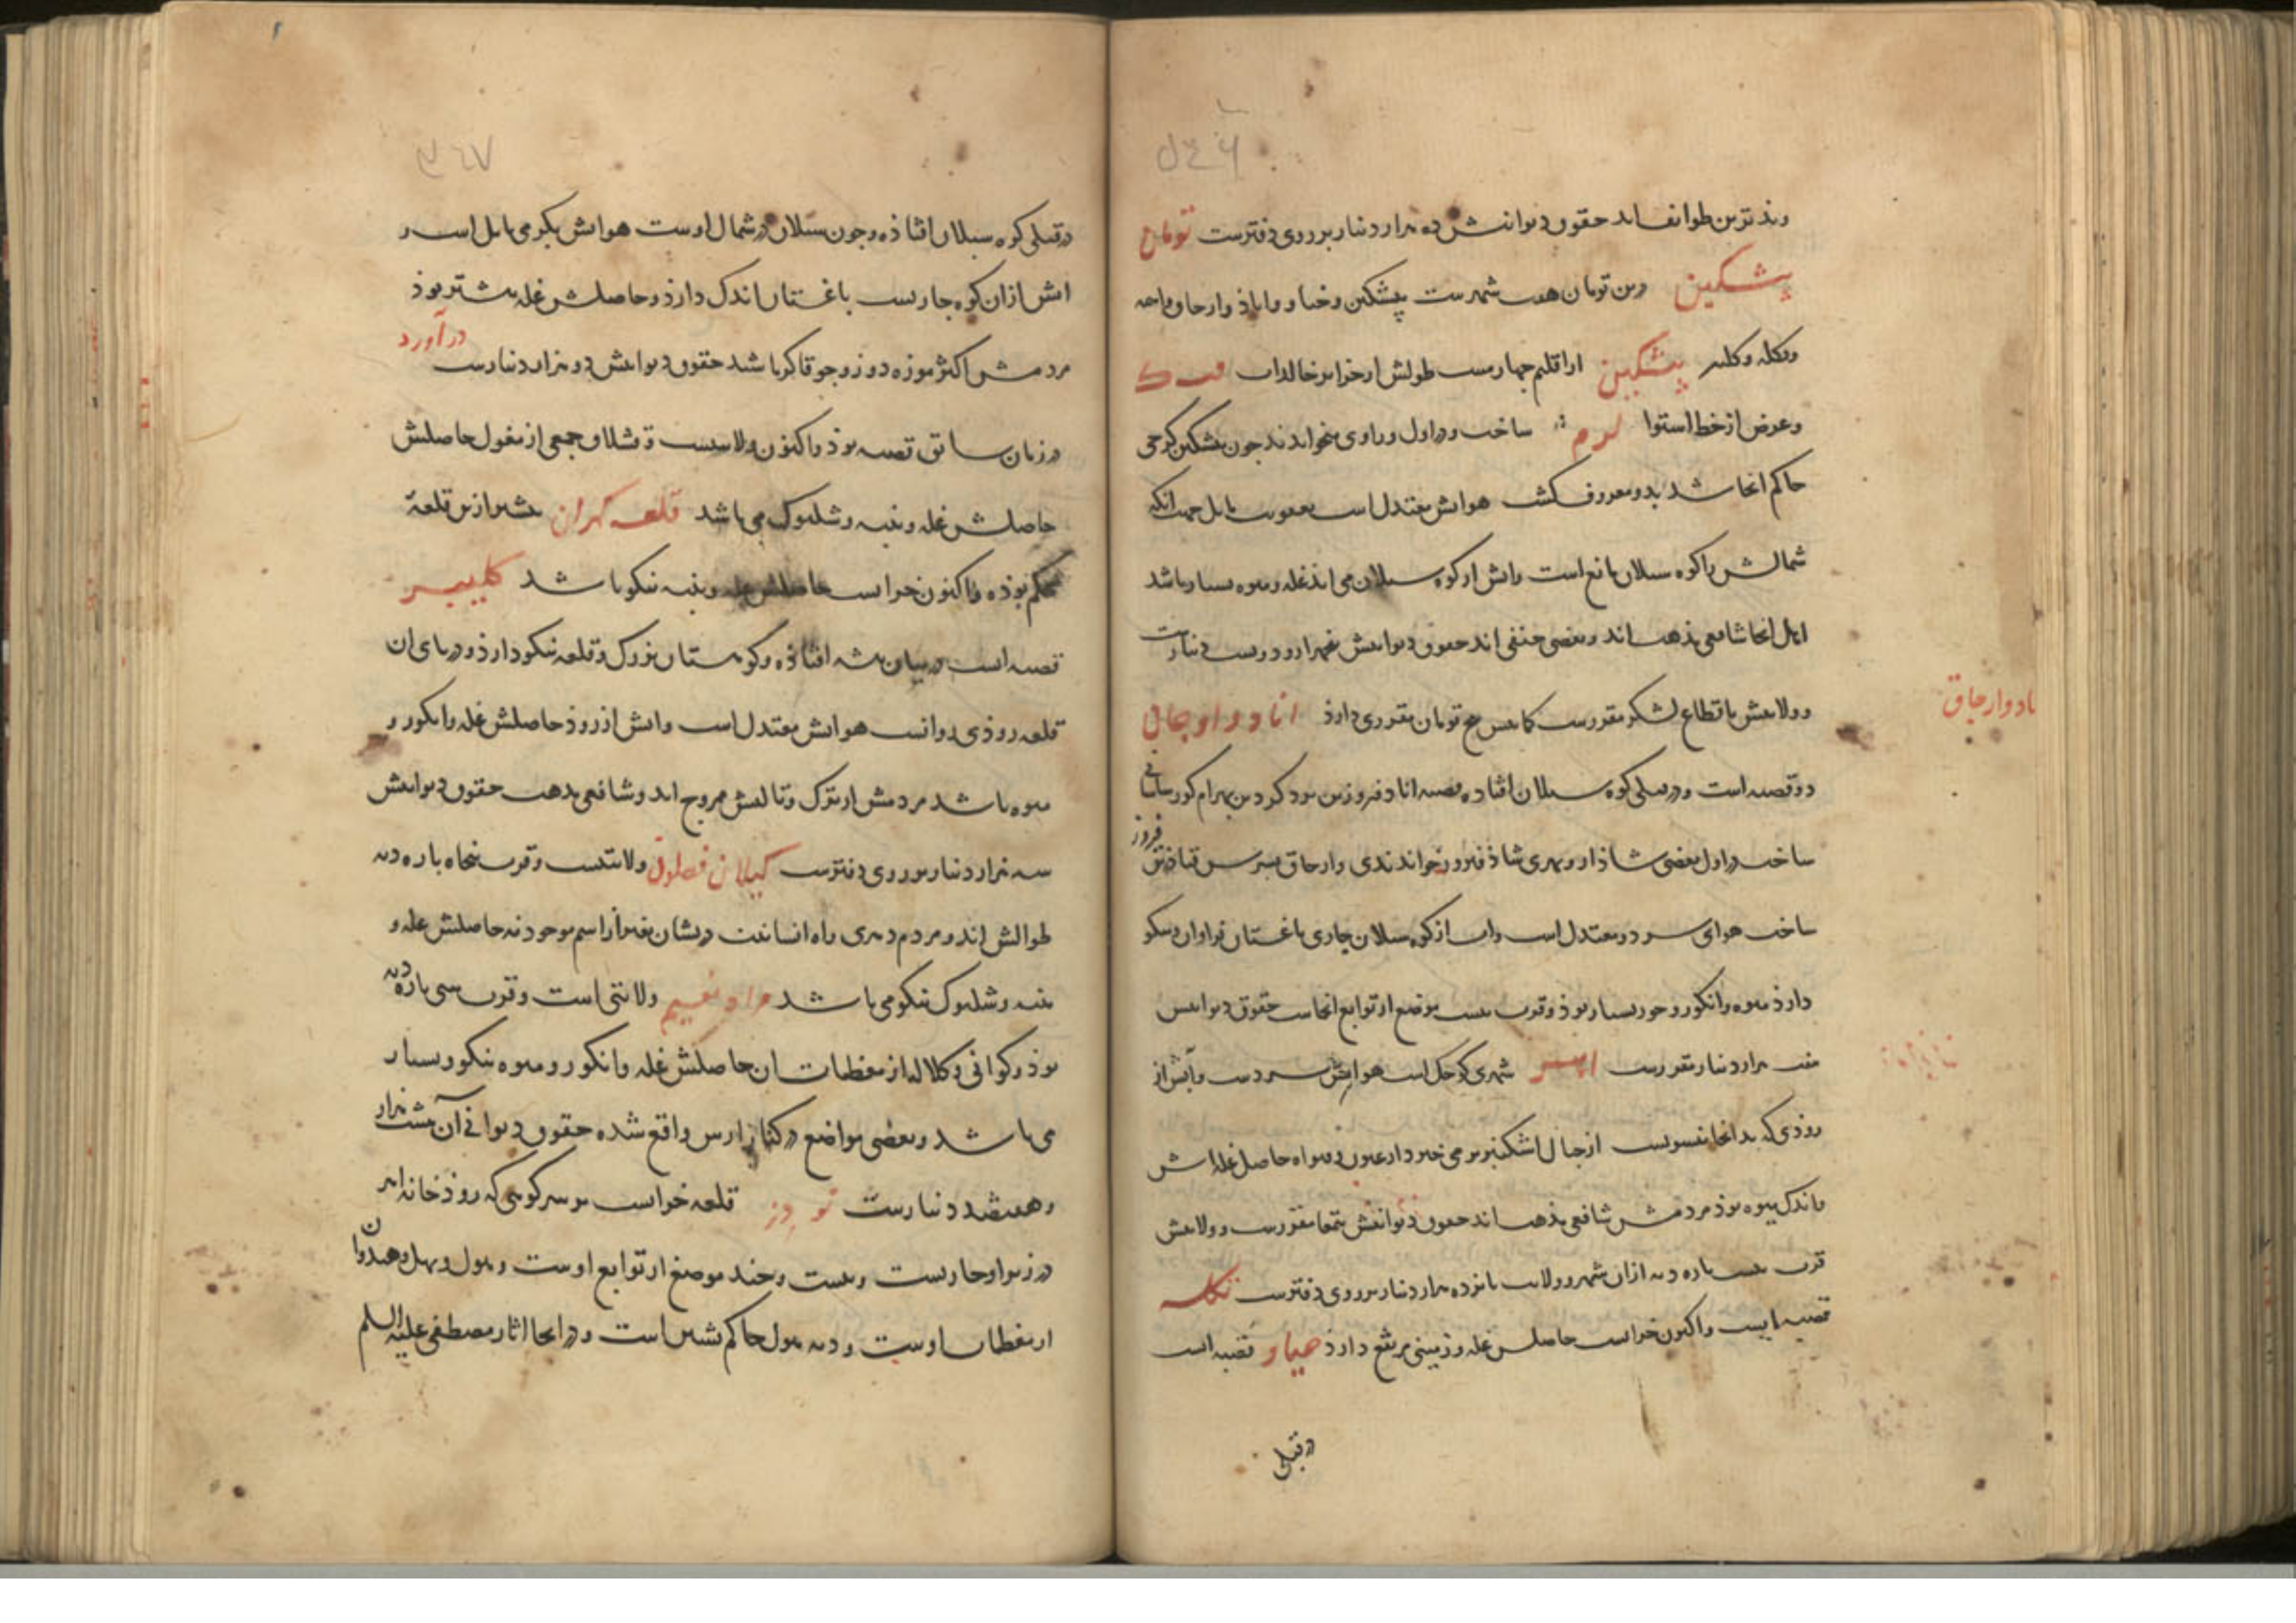 ۵۶۶
وند ترین طوایف اند حقوق دیوانیش ده هزار دینار بر روی دفترست تومان
پیشکین درین تومان هفت شهرست پیشکین و خیاو و اناد و ارجاق و اهر
و تکله و کلنبر پیشکین از اقلیم چهارمست طولش از جزایر خالدات فب ک
و عرض از خط استوا لر م ساخت و در اول وراوی میخواندند چون پیشکین کرجی
حاکم آنجا شد بدو معروف کشت هوایش معتدل است بعفونت مایل جهت آنکه
شمالش را کوه سبلان مانع است و آبش از کوه سبلان می آید غله و میوه بسیار باشد
اهل آنجا شافعی مذهب اند و بعضی حنفی اند حقوق دیوانیش پنجهزار و دویست دینارست
و ولایتش باقطاع لشکر مقررست کما بیش پنج تومان مقرری دارد اناد و ارجاق
دو قصبه است و در قبلی کوه سبلان افتاده قصبه اناد فیروز بن یزدکرد بن بهرام کور ساسانی
ساخت در اول بعضی شاذان و بهری شاد فیروز خواندندی و ارجاق پسرش قباد بن فیروز
ساخت هوای سرد و معتدل است و آب از کوه سبلان جاری باغستان فراوان و نیکو
دارد میوه و انکور و جوز بسیار بود و قرب بیست موضع از توابع آنجاست حقوق دیوانیش
هفت هزار دینار مقررست اهر شهری کوچک است هوایش سردست و آبش از
روذی که بدانجا منسوبست از جبال اشکنبر بر می خیزد و از عیون و قنوات حاصل غله اش
و اندک میوه بود مردمش شافعی مذهب اند حقوق دیوانیش بتمغا مقررست و ولایتش
قرب بیست پاره دیه از آن شهر و ولایت پانزده هزار دینار بر روی دفترست تکله
قصبه ایست و اکنون خرابست حاصلش غله و زمینی مرتفع دارد خیاو قصبه است
در قبلی
اناد و ارجاق
۵۶۷
در قبلی کوه سبلان افتاذه و چون سبلان در شمال اوست هوایش بکرمی مایل است و
آبش از آن کوه جاریست باغستان اندک دارد و حاصلش غله بیشتر بوذ
مردمش اکثر موزه دوز و چوقاکر باشد حقوق دیوانیش دو هزار دینارست درآورد
در زمان سابق قصبه بوذ و اکنون ولایتیست و قشلاق جمعی از مغول حاصلش
حاصلش غله و پنبه و شلتوک می باشد قلعه کهران پیش ازین قلعهٔ
محکم بوده و اکنون خرابست حاصلش غله و پنبه نیکو باشد کلیبر
قصبه است در میان بیشه افتاذه و کوهستان بزرک و قلعه نیکو دارد و در پای آن
قلعه روذی روانست هوایش معتدل است و آبش از روذ حاصلش غله و انکور و
میوه باشد مردمش از ترک و تالش ممزوج اند و شافعی مذهب حقوق دیوانیش
سه هزار دینار بر روی دفترست کیلان فصلون ولایتیست و قرب پنجاه پاره دیه
طوالش اند و مردم دری راه انسانیت در ایشان بغیر از اسم موجود نه حاصلش غله و
پنبه و شلتوک نیکو می باشد مراد نعیم ولایتی است و قرب سی پاره دیه
بوذ و کوانی و کلاله از معظمات آن حاصلش غله و انکور و میوه نیکو و بسیار
می باشد و بعضی مواضع در کنار ارس واقع شده حقوق دیوانی آن هشت هزار
و هفتصد دینارست نودز قلعه خرابست بر سر کوهی که روذخانه اهر
در زیر او جاریست و بیست و چند موضع از توابع اوست و هول و بهل و هندوان
از معظمات اوست و دیه هول حاکم نشین است و در آنجا آثار مصطفی علیه السلم